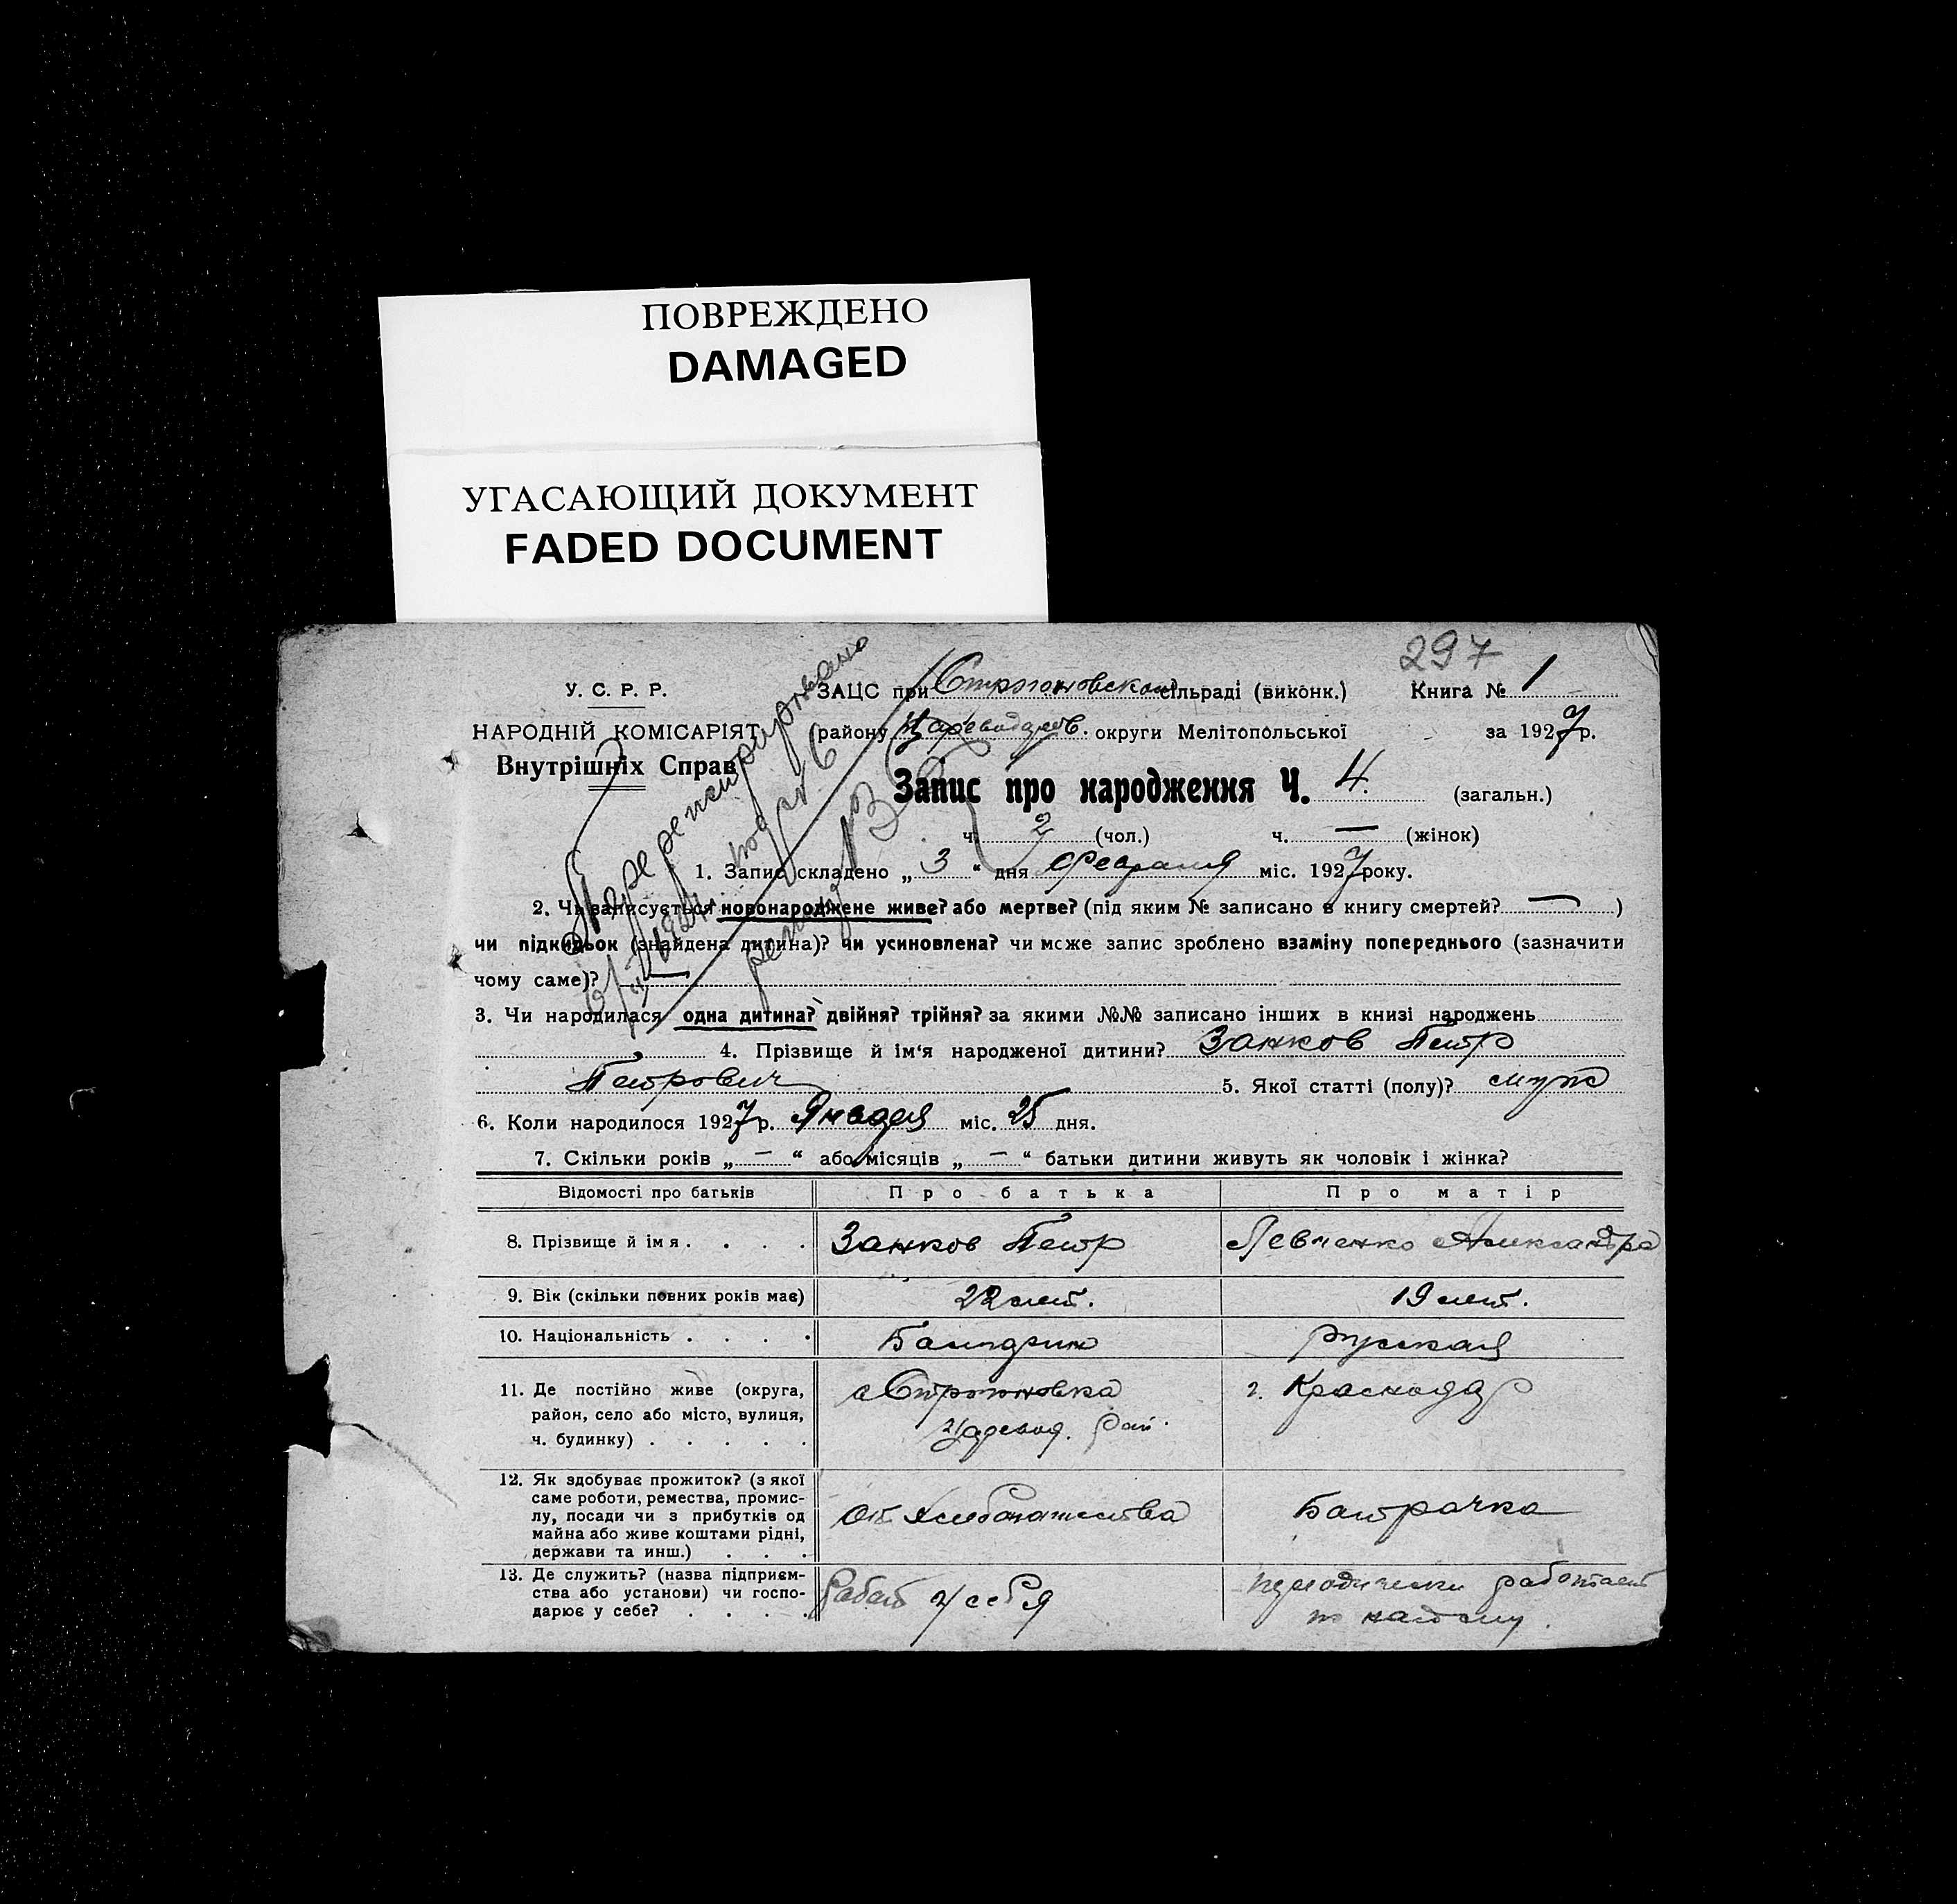 ПОВРЕЖДЕНО
DAMAGED
УГАСАЮЩИЙ ДОКУМЕНТ
FADED DOCUMENT
297
У. С. Р. Р.
НАРОДНІЙ КОМІСАРІЯТ
Внутрішніх Справ
ЗАЦС при Строгоновском сільраді (виконк.) Книга № 1
району Цареводаров. округи Мелітопольської за 1927 р.
Запис про народження Ч. 4. (загальн.)
ч. 2 (чол.) ч. — (жінок)
1. Запис складено „ 3 “ дня Февраля міс. 1927 року.
2. Чи записується новонароджене живе? або мертве? (під яким № записано в книгу смертей? — )
чи підкидьок (знайдена дитина)? чи усиновлена? чи може запис зроблено взаміну попереднього (зазначити
чому саме)? —
3. Чи народилася одна дитина? двійня? трійня? за якими №№ записано інших в книзі народжень
4. Прізвище й ім‘я народженої дитини? Занков Петр
Петрович 5. Якої статті (полу)? муж
6. Коли народилося 1927 р. Января міс. 25 дня.
7. Скільки років „ — “ або місяців „ — “ батьки дитини живуть як чоловік і жінка?
Відомості про батьків Про батька Про матір
8. Прізвище й імя . . . . Занков Петр Левченко Александра
9. Вік (скільки повних років має) 22 лет. 19 лет.
10. Національність . . . . Болгарин Русская
11. Де постійно живе (округа,
район, село або місто, вулиця,
ч. будинку) . . . . .
с Строгоновка
Царевод. Рай.
г. Краснодар
12. Як здобуває прожиток? (з якої
саме роботи, ремества, промис-
лу, посади чи з прибутків од
майна або живе коштами рідні,
держави та инш.) . . .
От Хлебопашества
Батрачка
13. Де служить? (назва підприєм-
ства або установи) чи госпо-
дарює у себе? . . . .
Работ у себя
периодически работает
по найому.